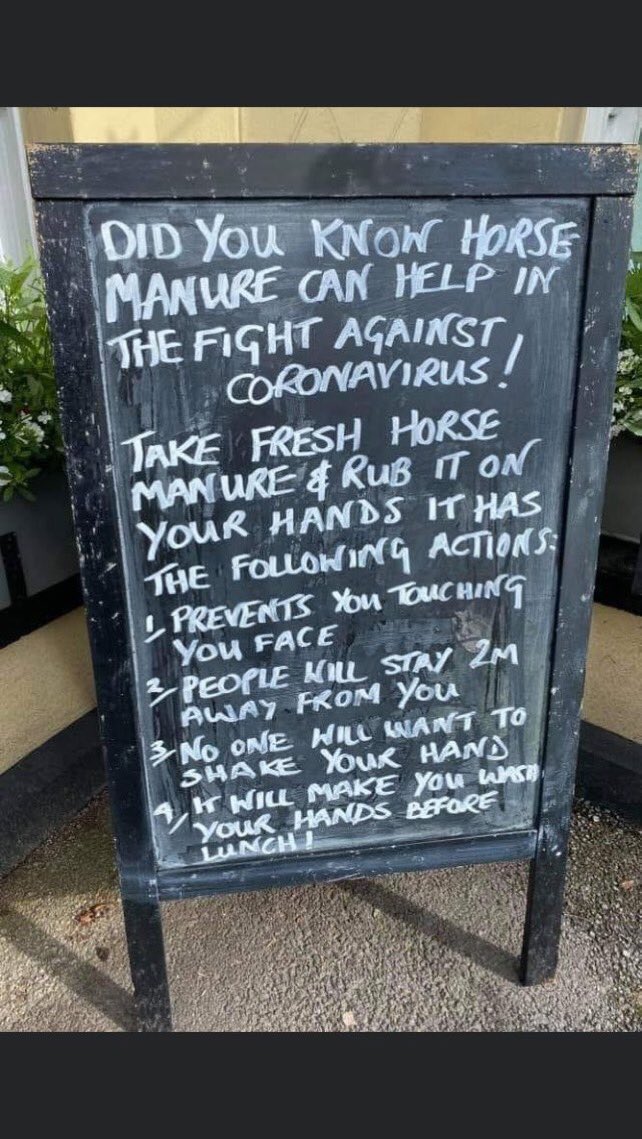 DID YOU KNOW HORSE
MANURE CAN HELP IN
THE FIGHT AGAINST
CORONAVIRUS!
TAKE FRESH HORSE
MANURE & RUB IT ON
YOUR HANDS IT HAS
THE FOLLOWING ACTIONS:
1, PREVENTS YOU TOUCHING
YOU FACE
2, PEOPLE WILL STAY 2M
AWAY FROM YOU
3, NO ONE WILL WANT TO
SHAKE YOUR HAND
4, IT WILL MAKE YOU WASH
YOUR HANDS BEFORE
LUNCH!